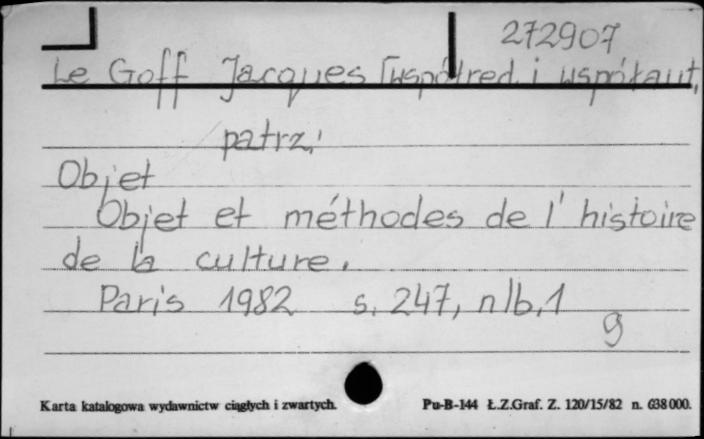 272907
Le Goff Jacques [współred. i współaut.
patrz:
Objet
Objet et méthodes de l'histoire
de la culture.
Paris 1982 s. 247, nlb. 1
g
Karta katalogowa wydawnictw ciągłych i zwartych. Pu-B-144 Ł.Z.Graf. Z. 120/15/82 n. 638 000.